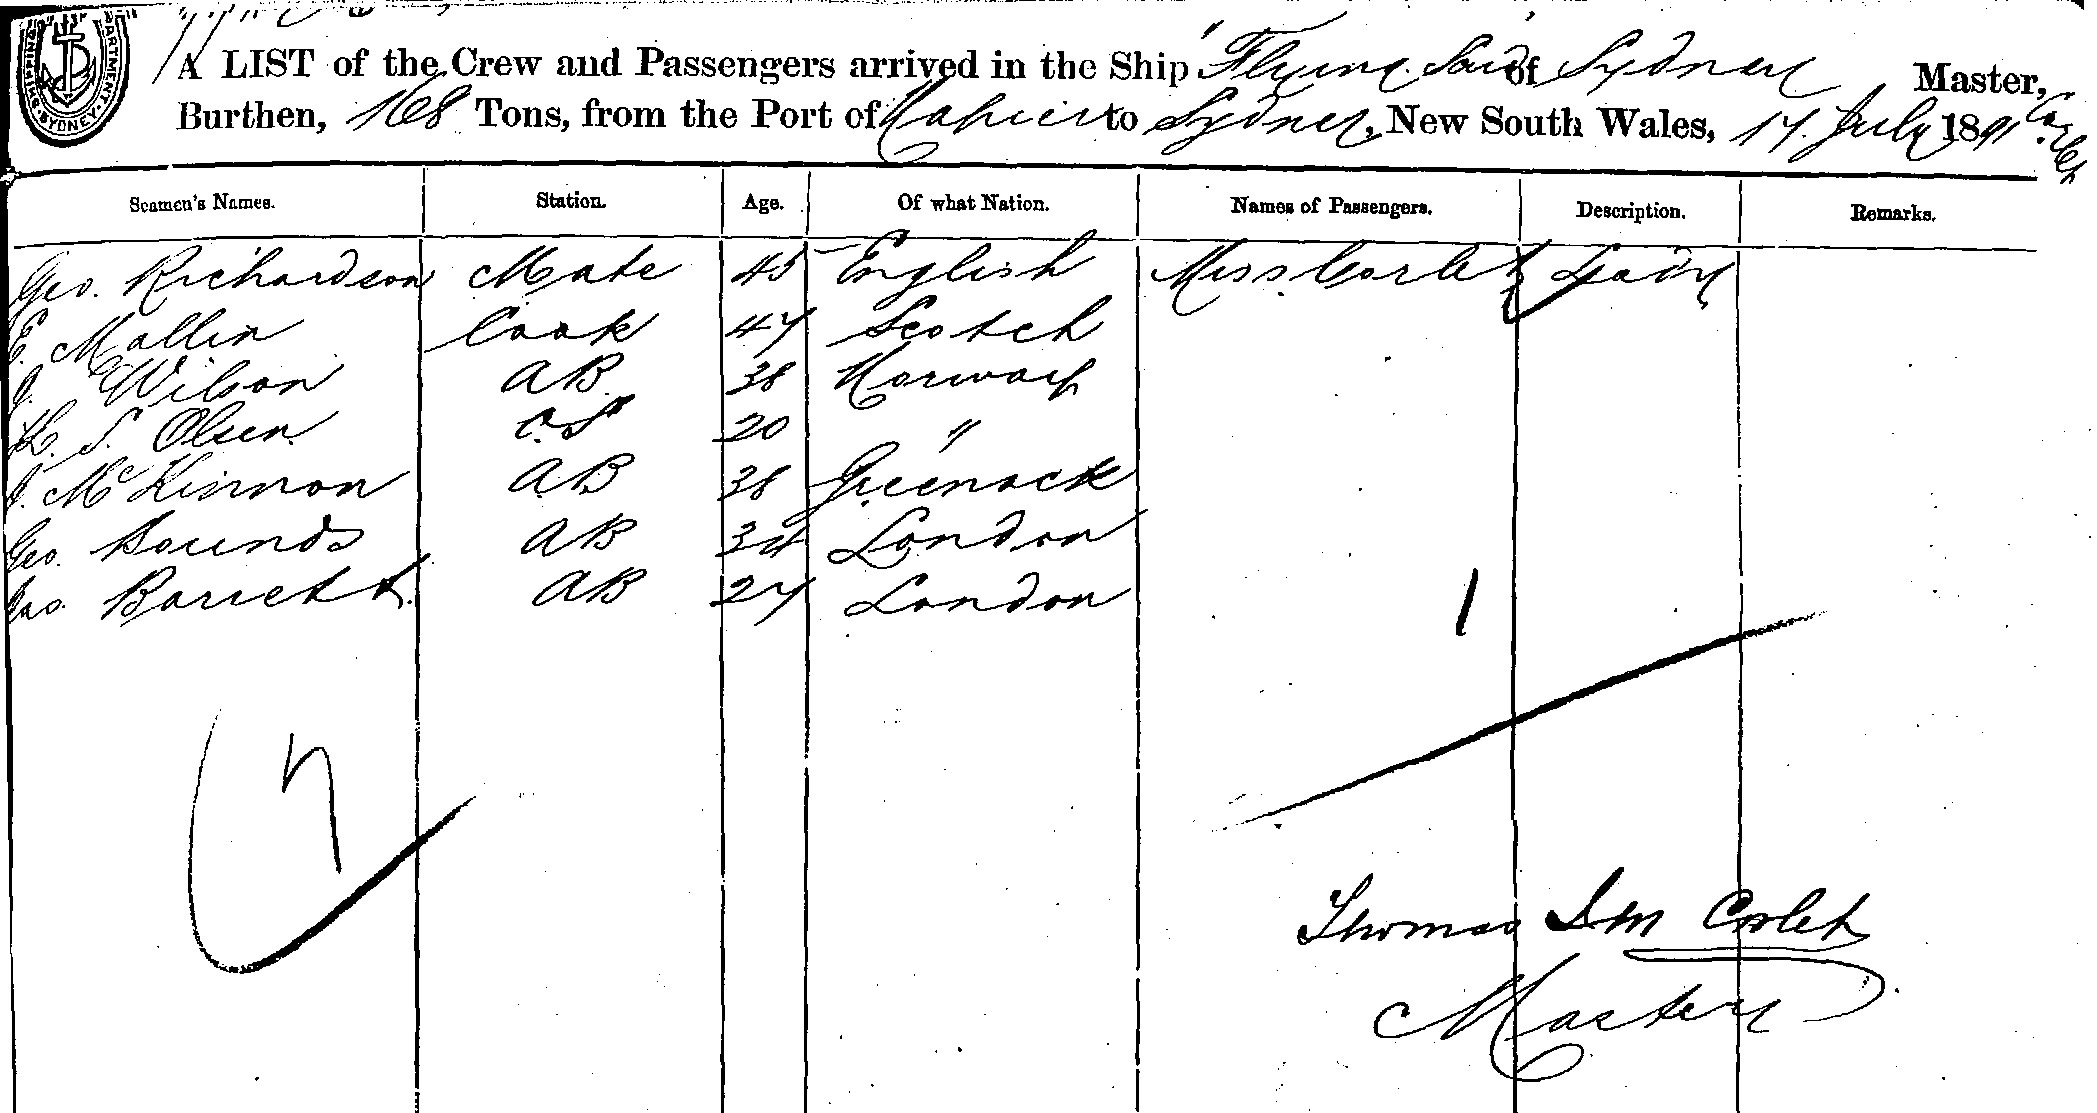 SHIPPING DEPARTMENT. SYDNEY
A LIST of the Crew and Passengers arrived in the Ship Flying of Sydney Master,
Burthen, 168 Tons, from the Port of Napier to Sydney, New South Wales, 17 July 1891 Corlet
Seamen's Names. Station. Age. Of what Nation. Names of Passengers. Description. Remarks.
Geo. Richardson Mate 45 English Miss Corlet Lady
E. Mallin Cook 47 Scotch
J. Wilson AB 38 Norway
S. Olsen OS 20 "
J. McKinnon AB 38 Greenock
Geo. Bounds AB 34 London
Jas. Barrett AB 27 London
1
7
Thomas Corlet
Master